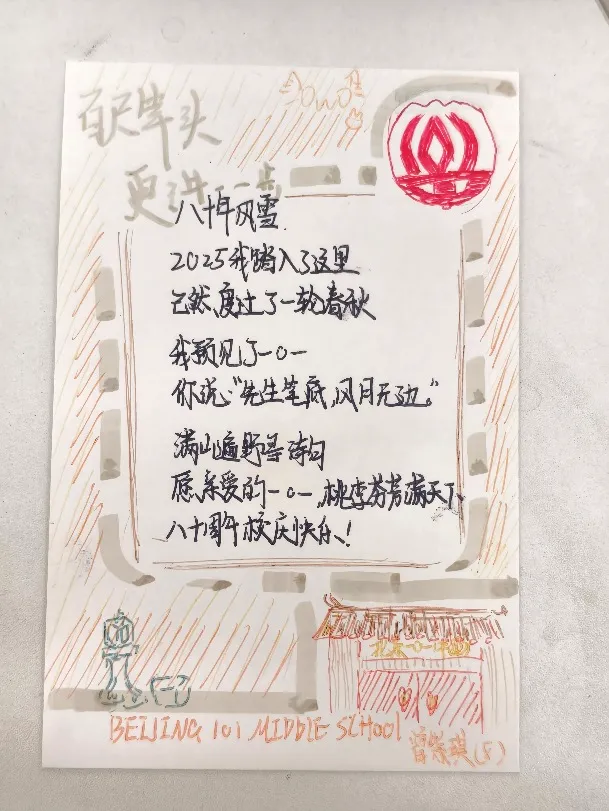 百尺竿头
更进一步
八十年风雪
2025我踏入了这里
已然,度过了一轮春秋
我预见了一0一
你说:“先生笔底,风月无边.”
满山遍野等诗句
愿,亲爱的一0一,桃李芬芳满天下、
八十周年校庆快乐!
北京一0一中学
BEIJING 101 MIDDLE SCHOOL